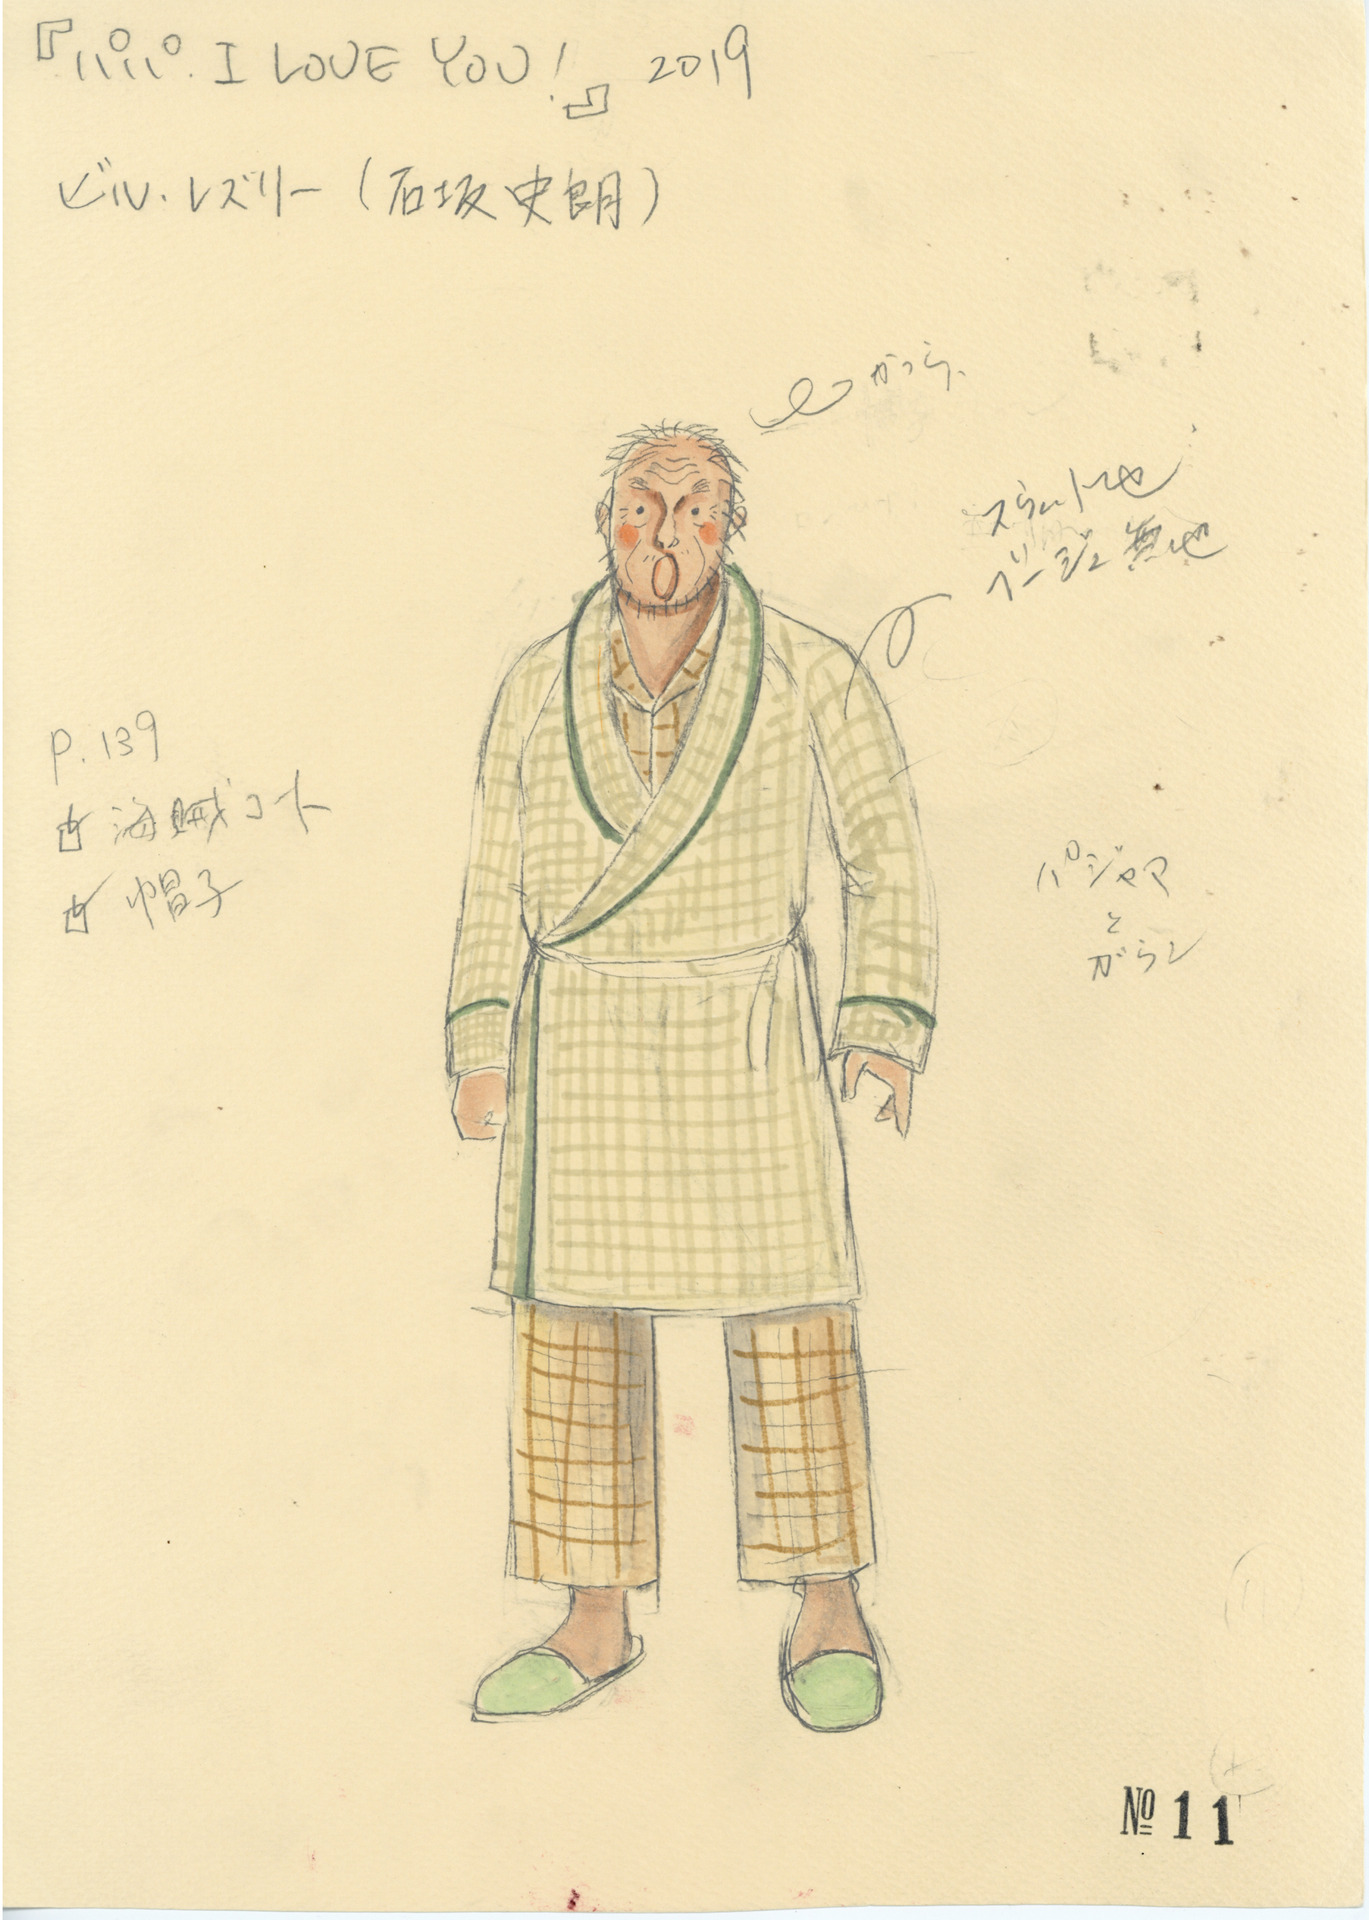 『パパ. I LOVE YOU!』 2019
ビル・レズリー (石坂史朗)
かつら
スウェット地
ベージュ 無地
P. 139
海賊コート
帽子
パジャマ
と
がうん
№ 11